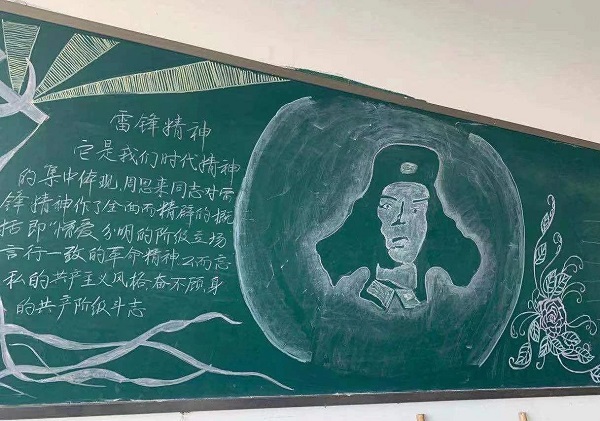 雷锋精神
它是我们时代精神
的集中体现,周恩来同志对雷
锋精神作了全面而精辟的概
括即"憎爱分明的阶级立场
言行一致的革命精神公而忘
私的共产主义风格,奋不顾身
的共产阶级斗志